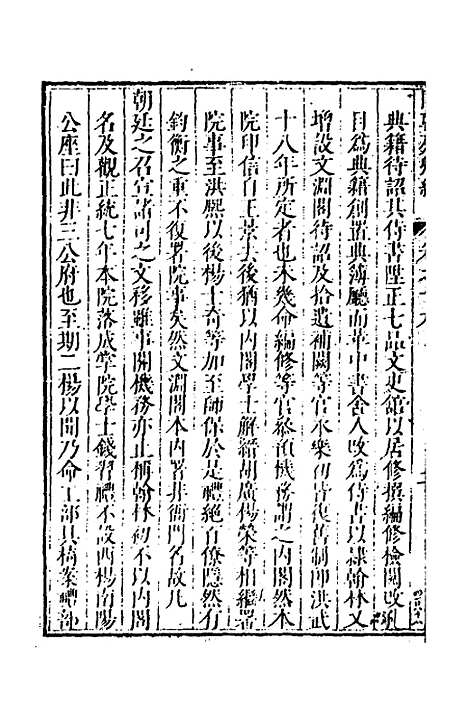 典籍待詔其侍書陞正七品文吏館以居修撰編修檢閱改孔
目爲典籍創置典簿廳而革中書舍人改爲侍書以隸翰林又
增設文淵閣待詔及拾遺補闕等官永樂初皆復舊制即洪武
十八年所定者也未幾命編修等官參預機務謂之內閣然本
院印信自王景去後猶以內閣學士解縉胡廣楊榮等相繼署
院事至洪熙以後楊士奇等加至師保於是禮絕百僚隱然有
鈞衡之重不復署院事矣然文淵閣本內署非衙門名故凡
朝廷之召宣諸司之文移雖事關機務亦止稱翰林初不以內閣
名及觀正統七年本院落成掌院學士錢習禮不設西楊南陽
公座曰此非三公府也至期二楊以聞乃命工部具椅案禮部